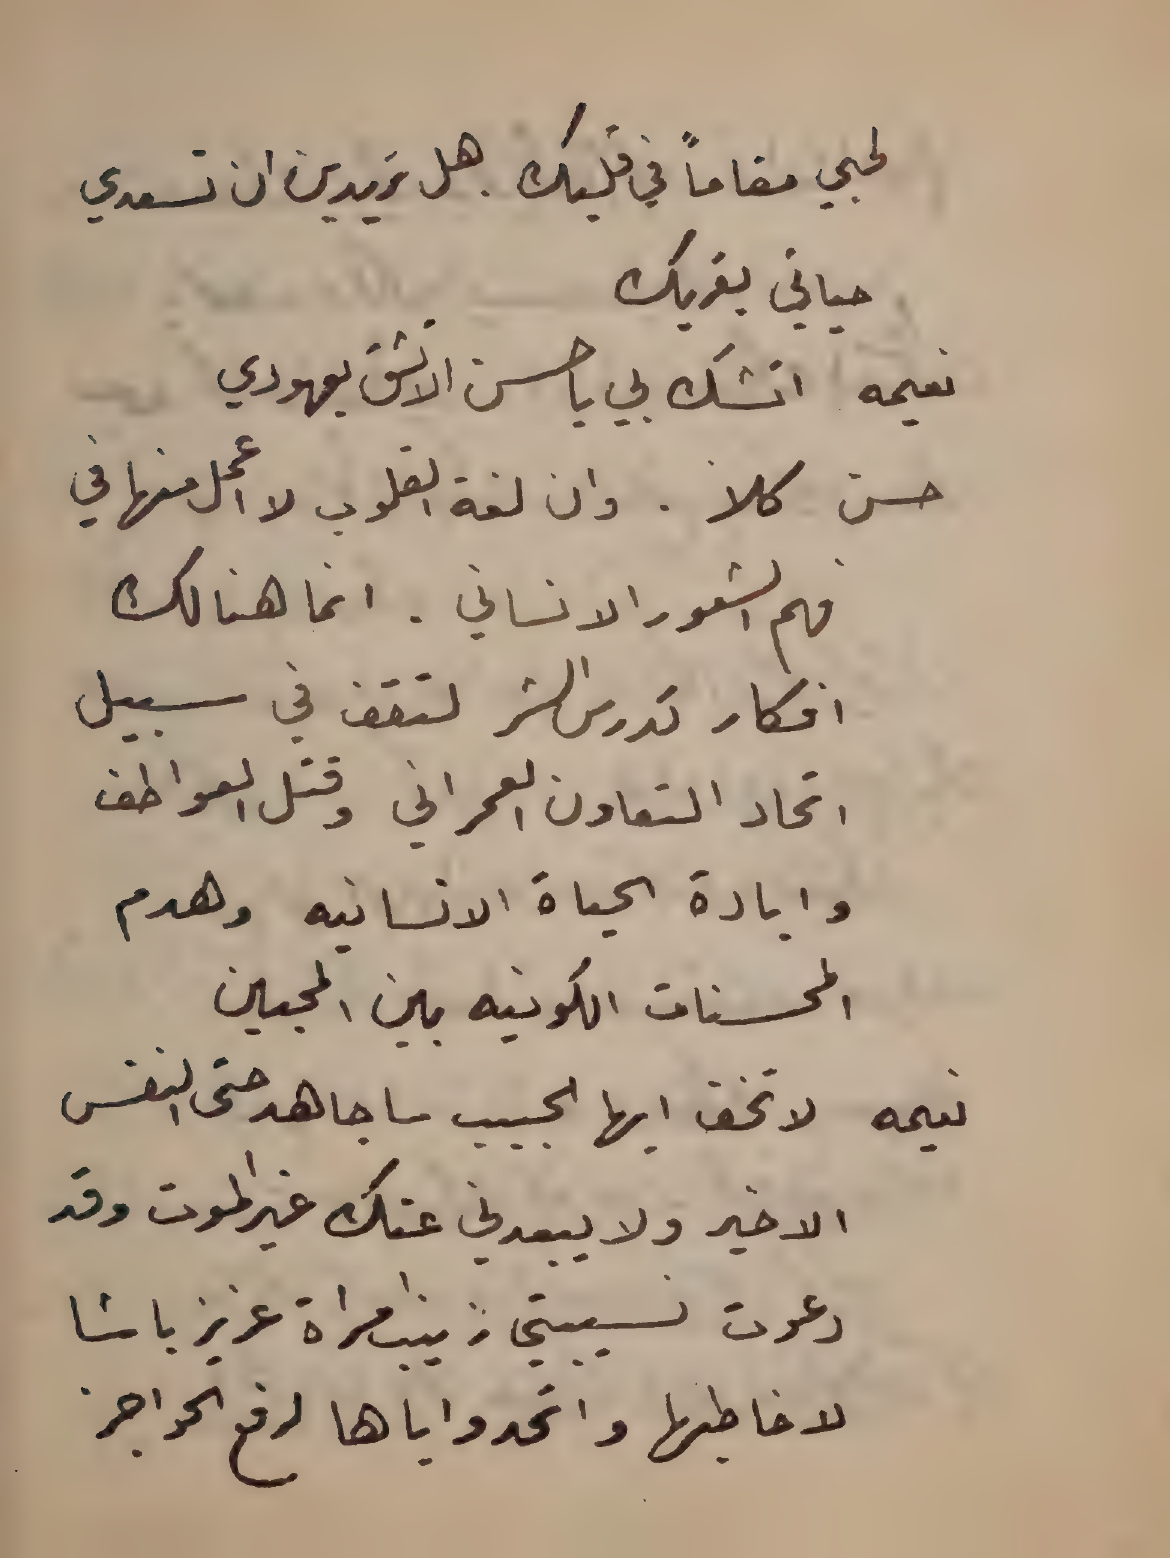 لحبي مقاماً في قلبك . هل تريدين ان تسعدي
حياتي بقربك
نعيمه اتشك بي يا حسن الا تثق بعهودي
حسن كلا . وان لغة القلوب لا اعمل منها في
فهم الشعور الانساني . انما هنالك
افكار تدرس الشر لتقف في سبيل
اتحاد التعاون العمراني وقتل العواطف
وابادة الحياة الانسانيه وهدم
المحسنات الكونيه بين المحبين
نعيمه لا تخف ايها الحبيب ساجاهد حتى النفس
الاخير ولا يبعدني عنك غير الموت وقد
دعوت نسيبتي زينب امراة عزيز باشا
لاخاطبها واتحد واياها لرفع الحواجز